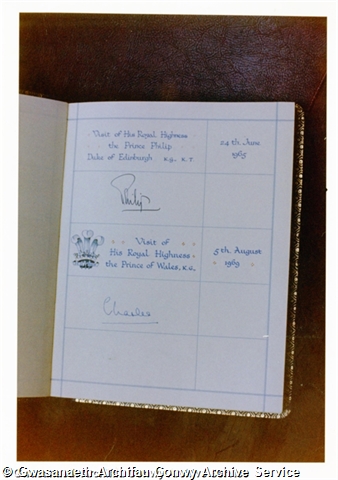 Visit of His Royal Highness
the Prince Philip
Duke of Edinburgh K.G., K.T.
24th. June
1965
Philip
Visit of
His Royal Highness
the Prince of Wales, K.G.
5th. August
1969
Charles
© Gwasanaeth Archifau Conwy Archive Service